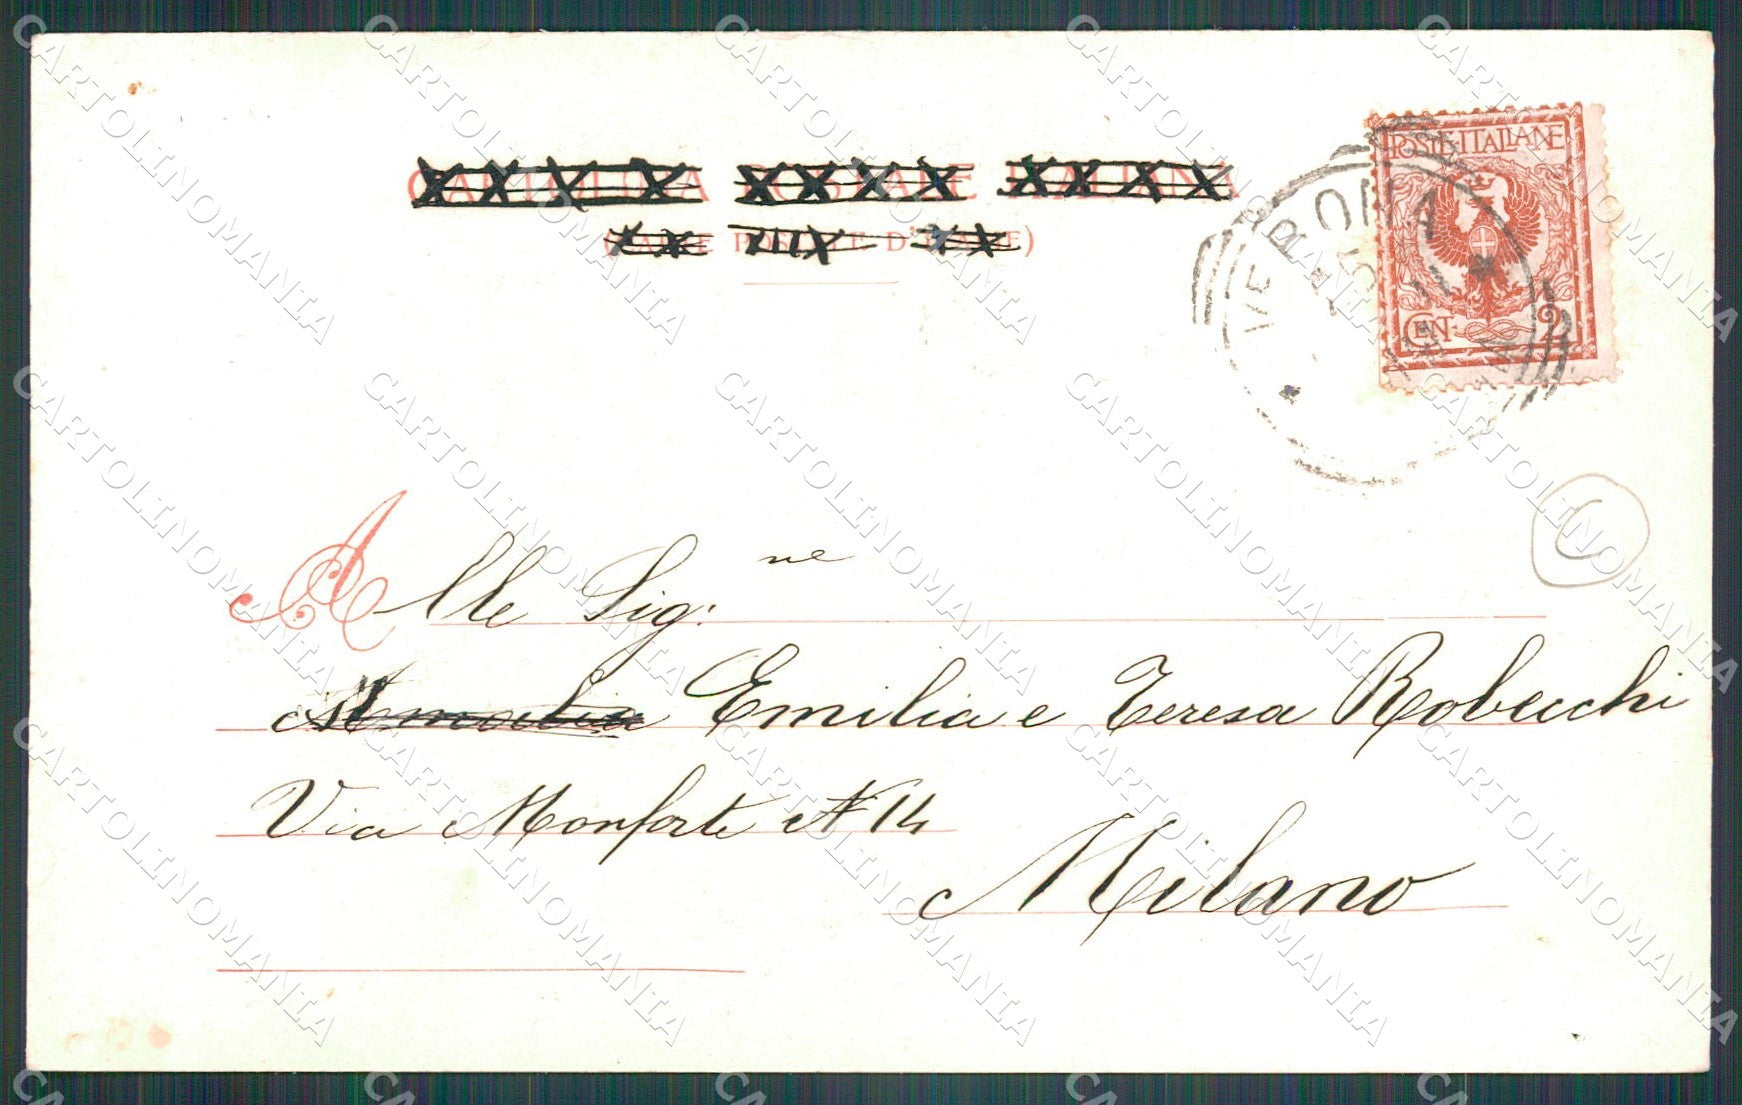 CARTOLINA POSTALE ITALIANA
(CARTE POSTALE D'ITALIE)
POSTE·ITALIANE
CEN. 2
VERONA
Alle Sig:ne
Amalia Emilia e Teresa Robecchi
Via Monforte N 14
Milano
C
CARTOLINOMANIA